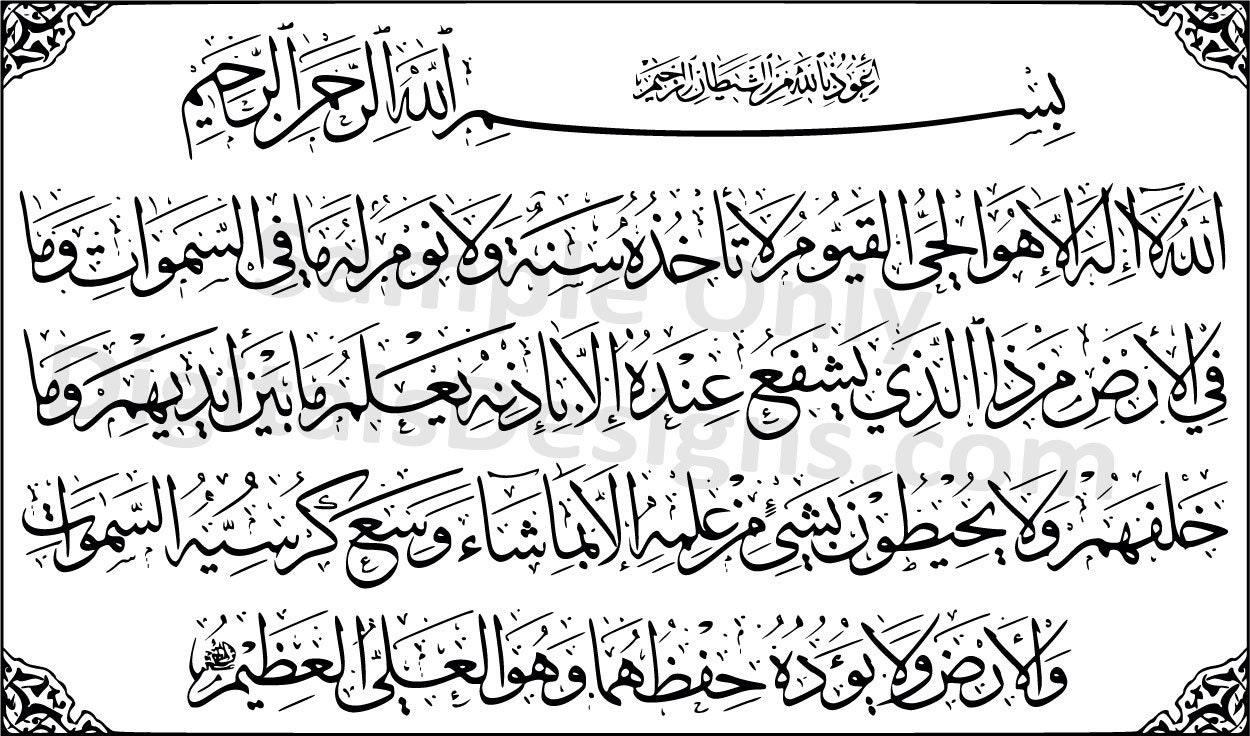 أعوذ بالله من الشيطان الرجيم
بسم الله الرحمن الرحيم
الله لا إله إلا هو الحي القيوم لا تأخذه سنة ولا نوم له ما في السموات وما
في الأرض من ذا الذي يشفع عنده إلا بإذنه يعلم ما بين أيديهم وما
خلفهم ولا يحيطون بشيء من علمه إلا بما شاء وسع كرسيه السموات
والأرض ولا يؤده حفظهما وهو العلي العظيم
Sample Only
DigitalsDesigns.com